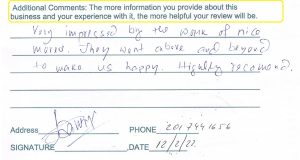 Additional Comments: The more information you provide about this
business and your experience with it, the more helpful your review will be.
Very impressed by the work of nice
moves. They went above and beyond
to make us happy. Highly recomend.
Address
PHONE 2017441656
SIGNATURE DATE 12/2/22